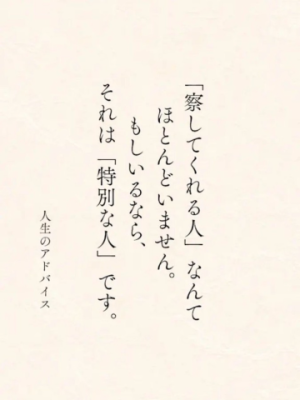 「察してくれる人」なんて
ほとんどいません。
もしいるなら、
それは「特別な人」です。
人生のアドバイス